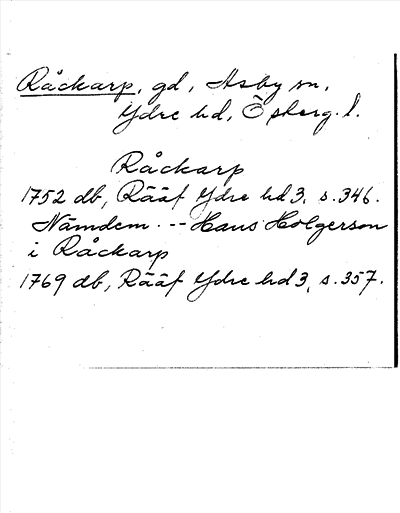 Råckarp, gd, Asby sn,
Ydre hd, Österg. l.
Råckarp
1752 db, Rääf Ydre hd 3, s. 346.
Nämdem. -- Hans Holgerson
i Råckarp
1769 db, Rääf Ydre hd 3, s. 357.